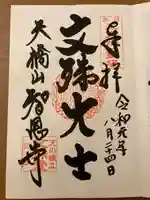 奉拝
令和元年
八月二十四日
文殊大士
天橋山
智恩寺